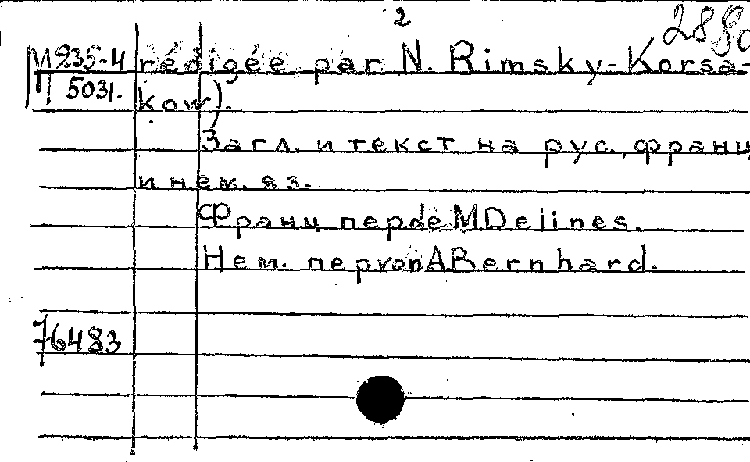 2
288
М 235-4 rédigée par N. Rimsky-Korsa-
5031. kow).
Загл. и текст на рус., франц
и нем. яз.
Франц. пер. de M Delines.
Нем. пер. von A Bernhard.
76483